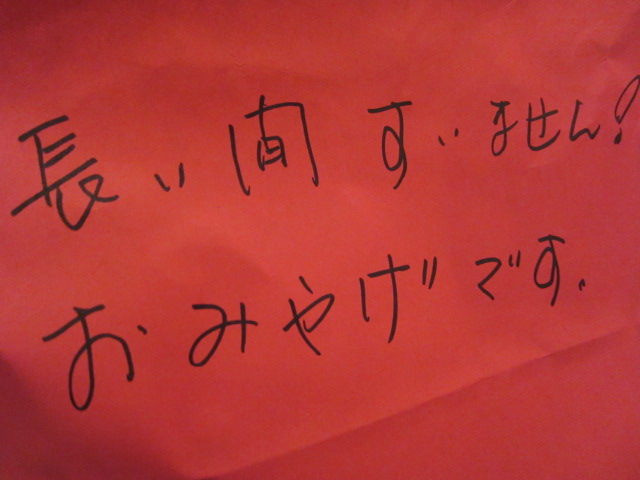 長い間すいません!
おみやげです.